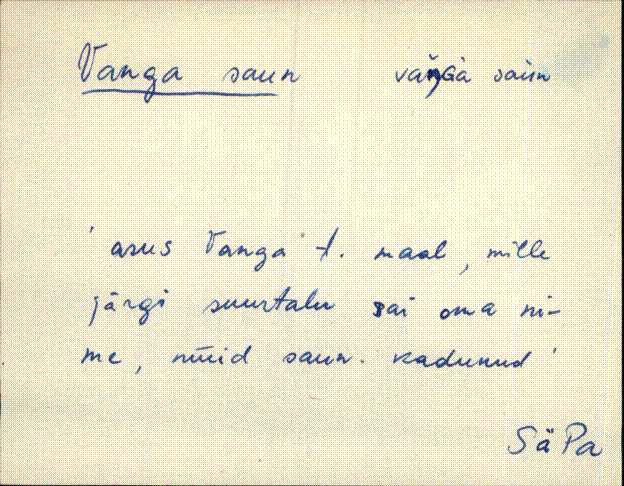 Vanga saun vaŋ̆Ga saun
' asus Vanga t. maal, mille
järgi suurtalu sai oma ni-
me, nüüd saun kadunud '
SäPa